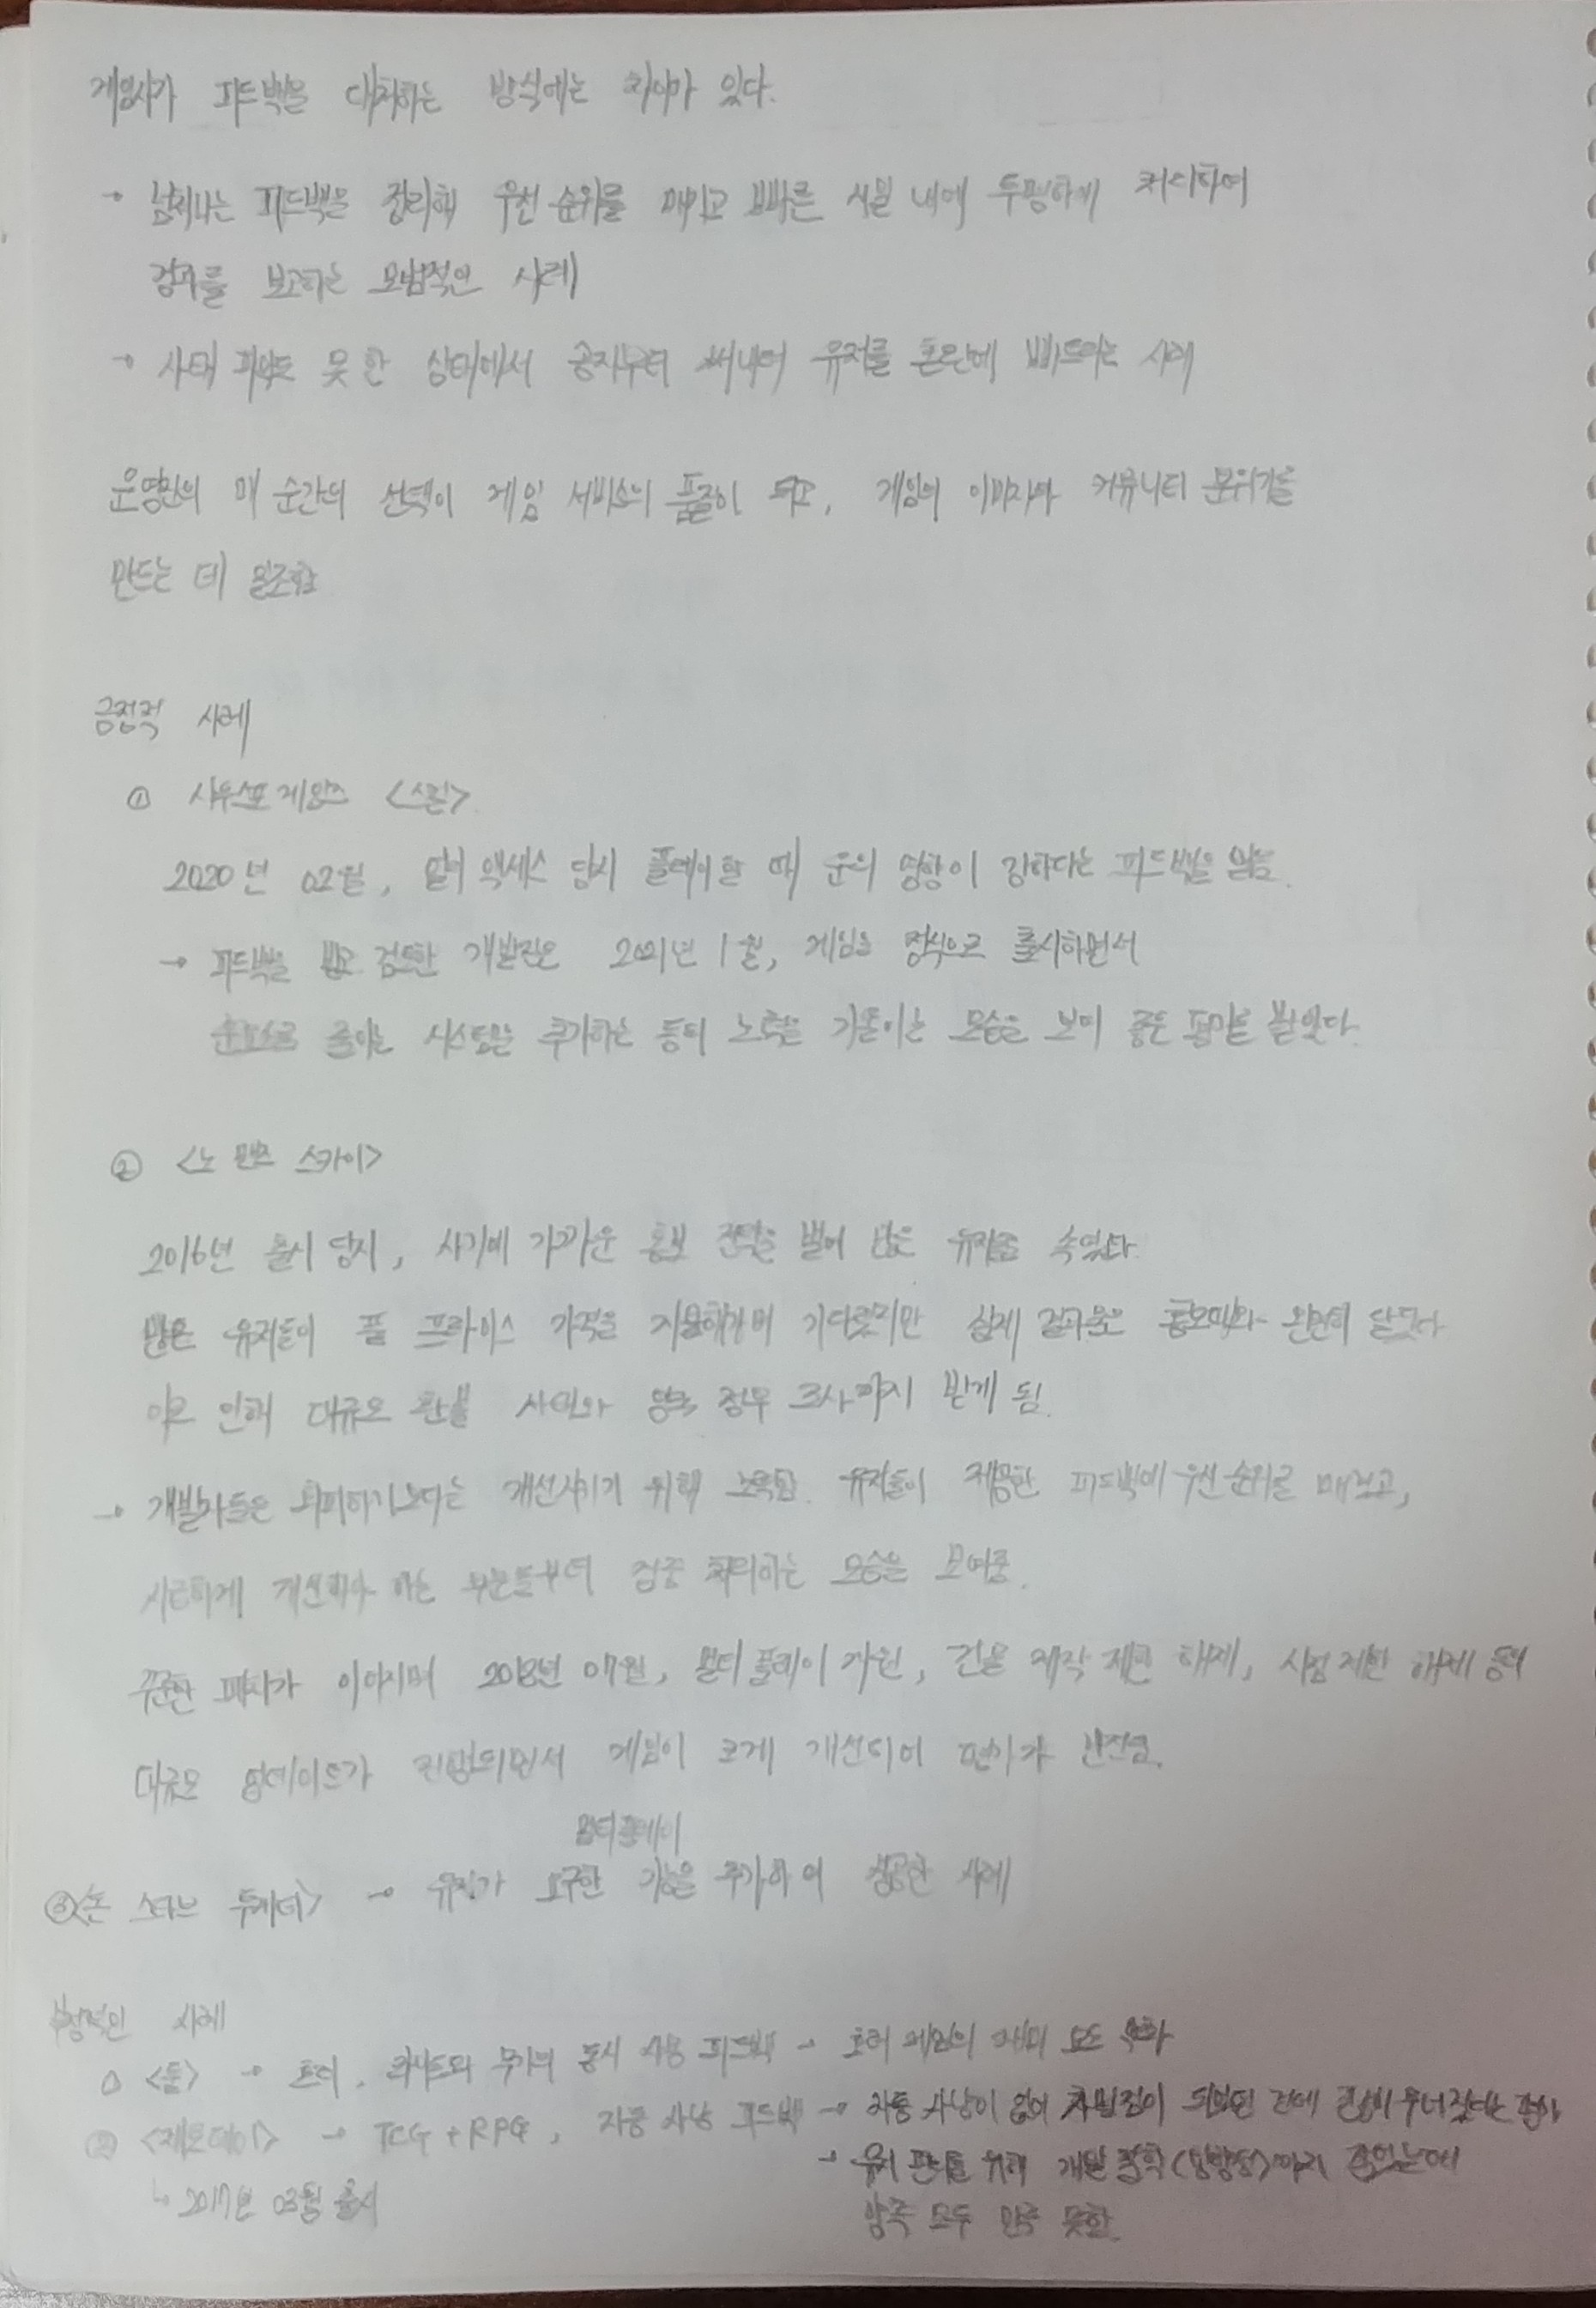 게임사가 피드백을 대처하는 방식에는 차이가 있다.
→ 넘쳐나는 피드백을 정리해 우선 순위를 매기고 빠른 시일 내에 투명하게 처리하여
결과를 보고하는 모범적인 사례
→ 사태 파악도 못 한 상태에서 공지부터 써내려 유저를 혼란에 빠뜨리는 사례
운영진의 매 순간의 선택이 게임 서비스의 품질이 되고, 게임의 이미지와 커뮤니티 분위기를
만드는 데 일조함
긍정적 사례
① 사우스포게임즈 <스컬>
2020년 02월, 얼리 액세스 당시 플레이할 때 운의 영향이 강하다는 피드백을 받음.
→ 피드백을 받고 검토한 개발진은 2021년 1월, 게임을 정식으로 출시하면서
운요소를 줄이는 시스템을 추가하는 등의 노력을 기울이는 모습을 보여 좋은 평가를 받았다.
② <노 맨즈 스카이>
2016년 출시 당시, 사기에 가까운 홍보 전략을 벌여 많은 유저를 속였다
많은 유저들이 풀 프라이스 가격을 지불해가며 기다렸지만 실제 결과물은 홍보때와 완전히 달랐다
이로 인해 대규모 환불 사태와 영국 정부 조사까지 받게 됨.
→ 개발자들은 회피하기보다는 개선시키기 위해 노력함. 유저들이 제공한 피드백에 우선순위를 매겼고,
시급하게 개선해야 하는 부분들부터 집중 처리하는 모습을 보여줌.
꾸준한 패치가 이어지며 2018년 07월, 멀티 플레이 지원, 건물 제작 제한 해제, 시점 제한 해제 등의
대규모 업데이트가 진행되면서 게임이 크게 개선되어 평가가 반전됨.
멀티플레이
③ <돈 스타브 투게더> → 유저가 요구한 기능을 추가하여 성공한 사례
부정적인 사례
① <둠> → 호러, 라이트와 무기의 동시 사용 피드백 → 호러 게임의 재미 요소 약화
② → TCG + RPG, 자동 사냥 피드백 → 자동 사냥이 없어 차별점이 되었던 전에 무너졌다는 평가
→ 유저 편의를 위해 개발 철학
↳ 2017년 03월 출시
양쪽 모두 만족 못함.